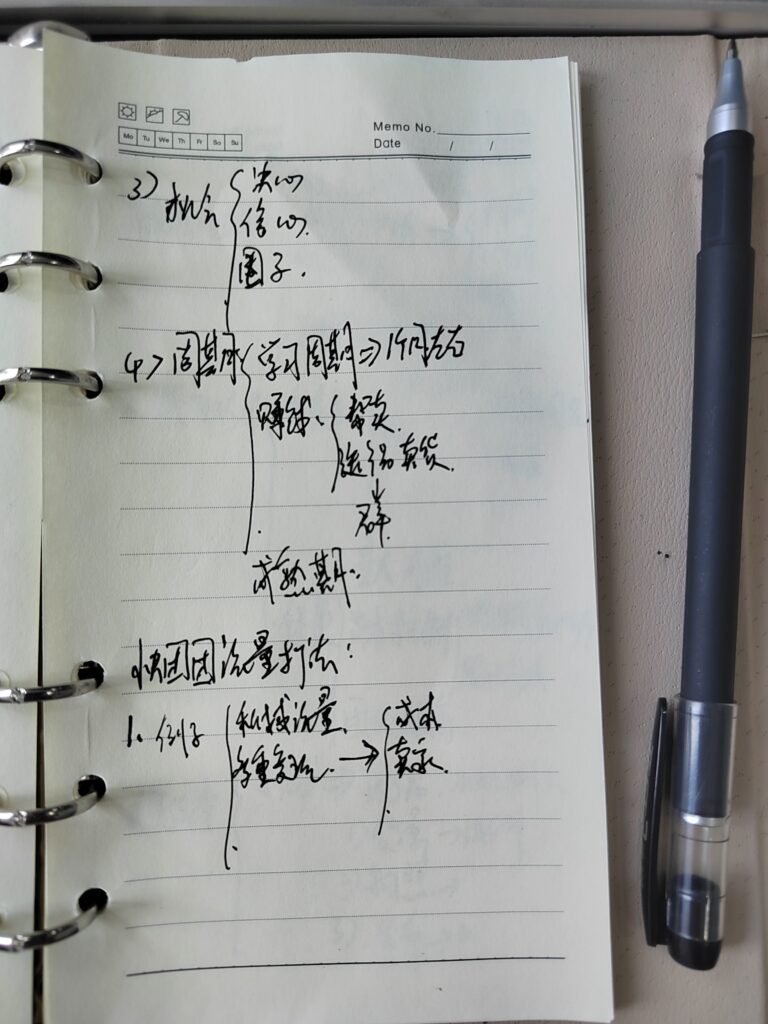 Mo Tu We Th Fr Sa Su
Memo No.
Date / /
3) 机会 { 决心
信心
圈子.
4> 周期 { 学习周期 => 1个月左右
赚钱: { 帮卖
卖货.
↓
群
成熟期:
快团团流量打法:
1. 例子 { 私域流量
→ { 成本